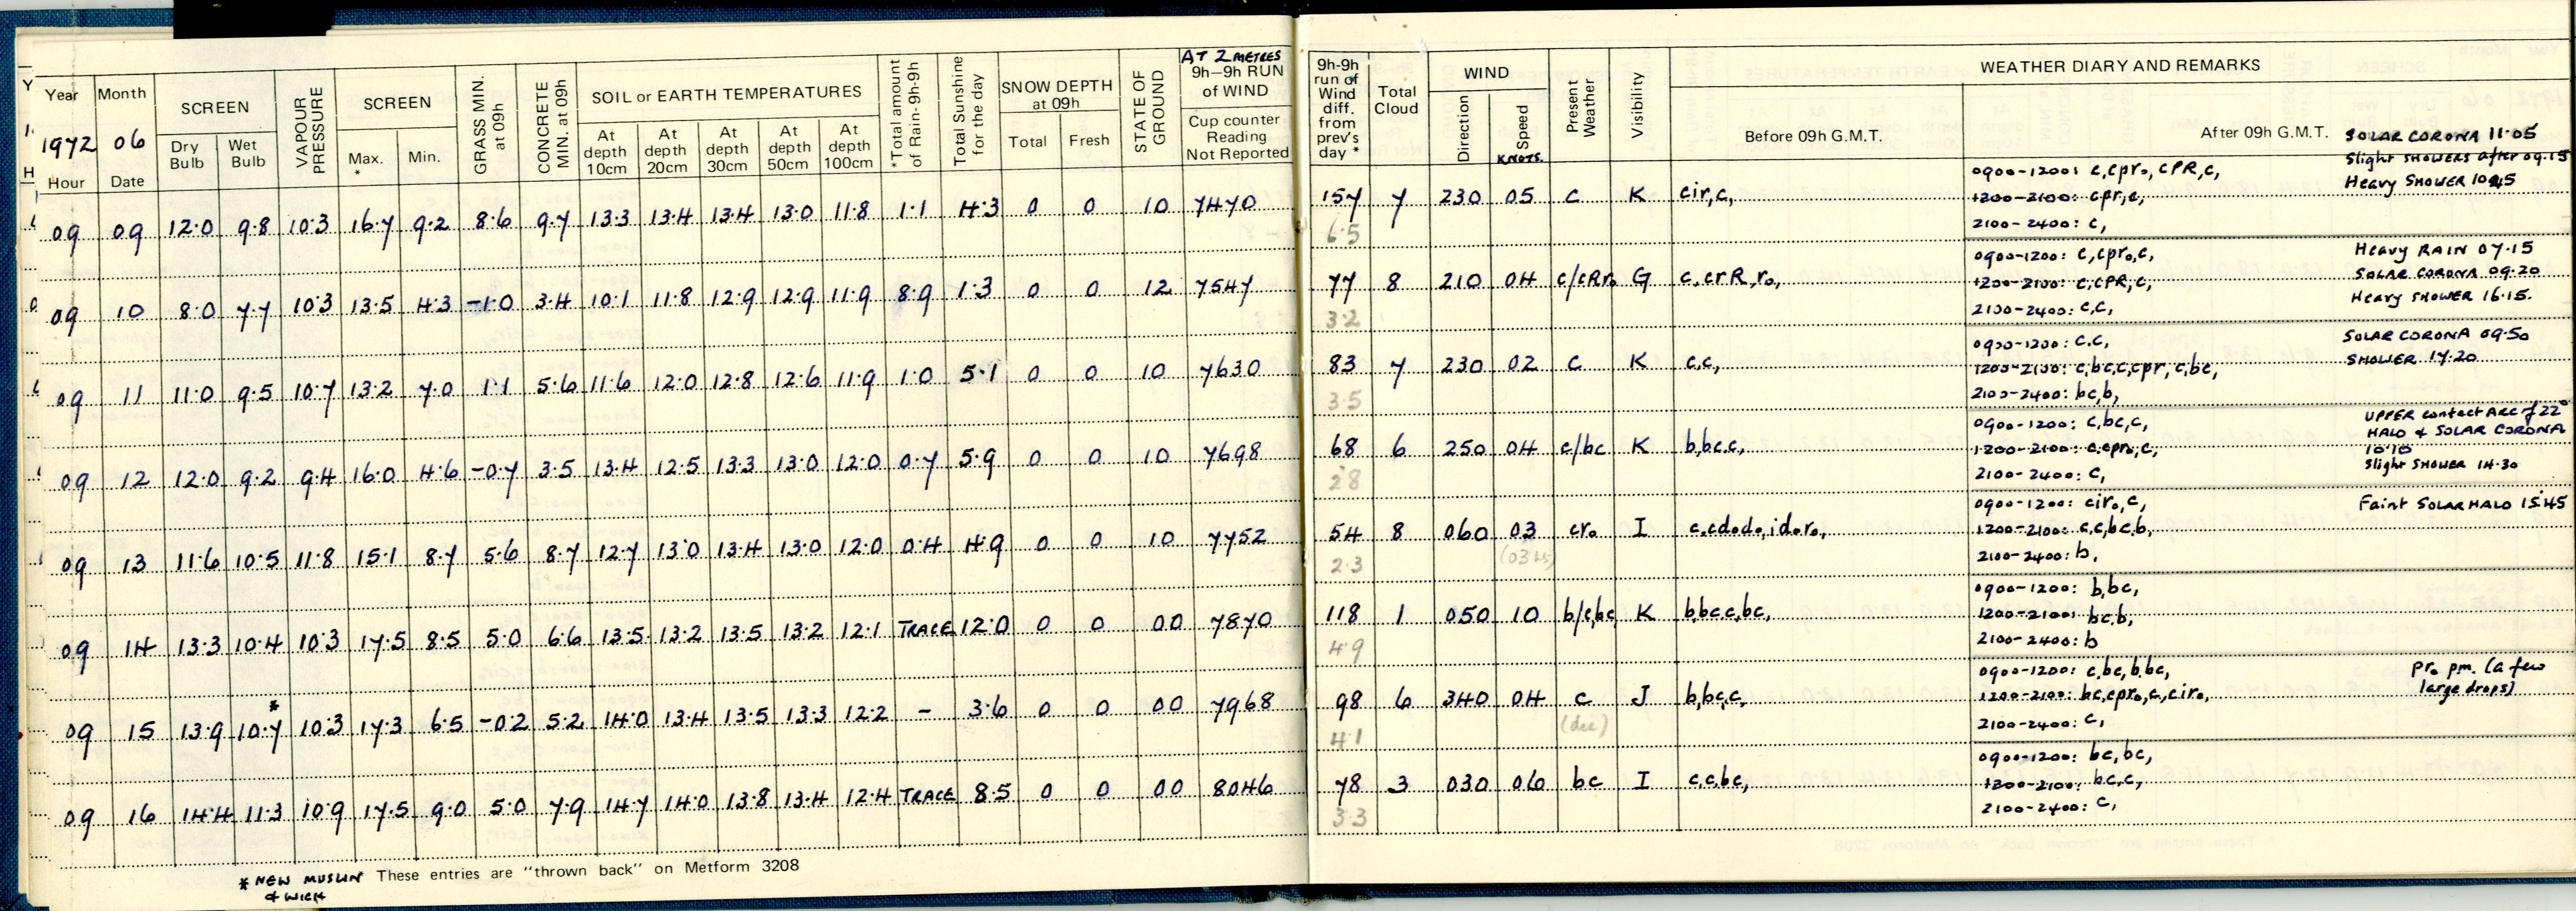 AT 2 METRES
Year Month SCREEN VAPOUR PRESSURE SCREEN GRASS MIN. at 09h CONCRETE MIN. at 09h SOIL or EARTH TEMPERATURES *Total amount of Rain- 9h-9h Total Sunshine for the day SNOW DEPTH at 09h STATE OF GROUND 9h-9h RUN of WIND
1972 06 Dry Bulb Wet Bulb Max. * Min. At depth 10cm At depth 20cm At depth 30cm At depth 50cm At depth 100cm Total Fresh Cup counter Reading Not Reported
Hour Date
09 09 12.0 9.8 10.3 16.7 9.2 8.6 9.7 13.3 13.4 13.4 13.0 11.8 1.1 4.3 0 0 10 7470
09 10 8.0 7.7 10.3 13.5 4.3 -1.0 3.4 10.1 11.8 12.9 12.9 11.9 8.9 1.3 0 0 12 7547
09 11 11.0 9.5 10.7 13.2 7.0 1.1 5.6 11.6 12.0 12.8 12.6 11.9 1.0 5.1 0 0 10 7630
09 12 12.0 9.2 9.4 16.0 4.6 -0.7 3.5 13.4 12.5 13.3 13.0 12.0 0.7 5.9 0 0 10 7698
09 13 11.6 10.5 11.8 15.1 8.7 5.6 8.7 12.7 13.0 13.4 13.0 12.0 0.4 4.9 0 0 10 7752
09 14 13.3 10.4 10.3 17.5 8.5 5.0 6.6 13.5 13.2 13.5 13.2 12.1 TRACE 12.0 0 0 00 7870
*
09 15 13.9 10.7 10.3 17.3 6.5 -0.2 5.2 14.0 13.4 13.5 13.3 12.2 - 3.6 0 0 00 7968
09 16 14.4 11.3 10.9 17.5 9.0 5.0 7.9 14.7 14.0 13.8 13.4 12.4 TRACE 8.5 0 0 00 8046
* NEW MUSLIN & WICK
These entries are "thrown back" on Metform 3208
9h-9h run of Wind diff. from prev's day * Total Cloud WIND Present Weather Visibility WEATHER DIARY AND REMARKS
Direction Speed KNOTS. Before 09h G.M.T. After 09h G.M.T.
SOLAR CORONA 11.05
Slight SHOWERS after 09.15
Heavy SHOWER 1045
157 7 230 05 c K cir,c,
6.5
0900-1200: c,cpro, cPR,c,
1200-2100: cpr,c,
2100-2400: c,
77 8 210 04 c/cRro G c,crR,ro,
3.2
0900-1200: c,cpro,c,
1200-2100: c,cPR,c,
2100-2400: c,c,
Heavy RAIN 07.15
SOLAR CORONA 09.20
Heavy SHOWER 16.15.
83 7 230 02 c K c,c,
3.5
0900-1200: c,c,
1200-2100: c,bc,c,cpr,c,bc,
2100-2400: bc,b,
SOLAR CORONA 09.50
SHOWER 17.20
68 6 250 04 c/bc K b,bc,c,
2.8
0900-1200: c,bc,c,
1200-2100: c,cpro,c,
2100-2400: c,
UPPER contact ARC of 22°
HALO & SOLAR CORONA
10.10
Slight SHOWER 14.30
54 8 060 03 cro I c,cdodo,idoro,
2.3
0900-1200: ciro,c,
1200-2100: c,c,bc,b,
2100-2400: b,
Faint SOLAR HALO 15.45
118 1 050 10 b/c,bc K b,bc,c,bc,
4.9
0900-1200: b,bc,
1200-2100: bc,b,
2100-2400: b
98 6 340 04 c J b,bc,c,
4.1 (dec)
0900-1200: c,bc,b,bc,
1200-2100: bc,cpro,c,ciro,
2100-2400: c,
pro pm. (a few
large drops)
78 3 030 06 bc I c,c,bc,
3.3
0900-1200: bc,bc,
1200-2100: bc,c,
2100-2400: c,